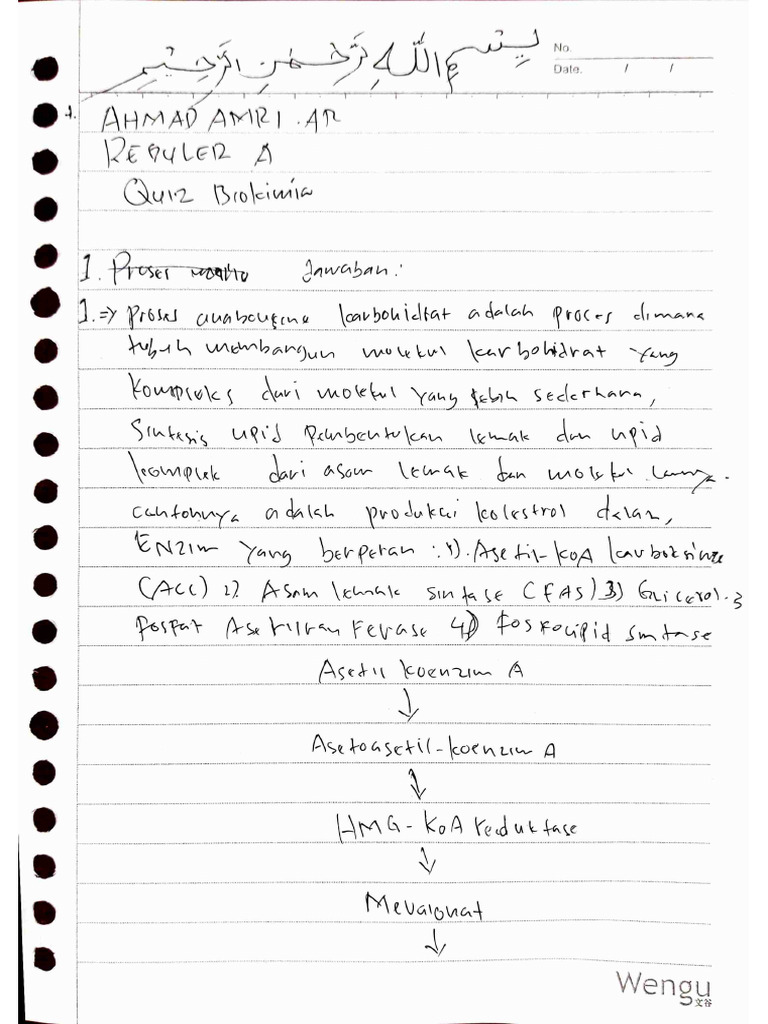 بسم الله الرحمن الرحيم
No.
Date. / /
AHMAD AMRI . AR
REGULER A
Quiz Biokimia
1. Proses Jawaban :
1. => Proses anabolisme karbohidrat adalah proses dimana
tubuh membangun molekul karbohidrat yang
kompleks dari molekul yang lebih sederhana,
Sintesis lipid pembentukan lemak dan lipid
komplek dari asam lemak dan molekul lainnya.
contohnya adalah produksi kolestrol dalam,
ENZim yang berperan : 1). Asetil-KoA karboksilase
(ACC) 2) Asam lemak sintase (FAS) 3) Glicerol-3
Fospat Asetiltransferase 4) Fosfolipid sintase
Asetil Koenzim A
↓
Asetoasetil-Koenzim A
↓
HMG-KoA reduktase
↓
Mevalonat
↓
Wengu
文谷